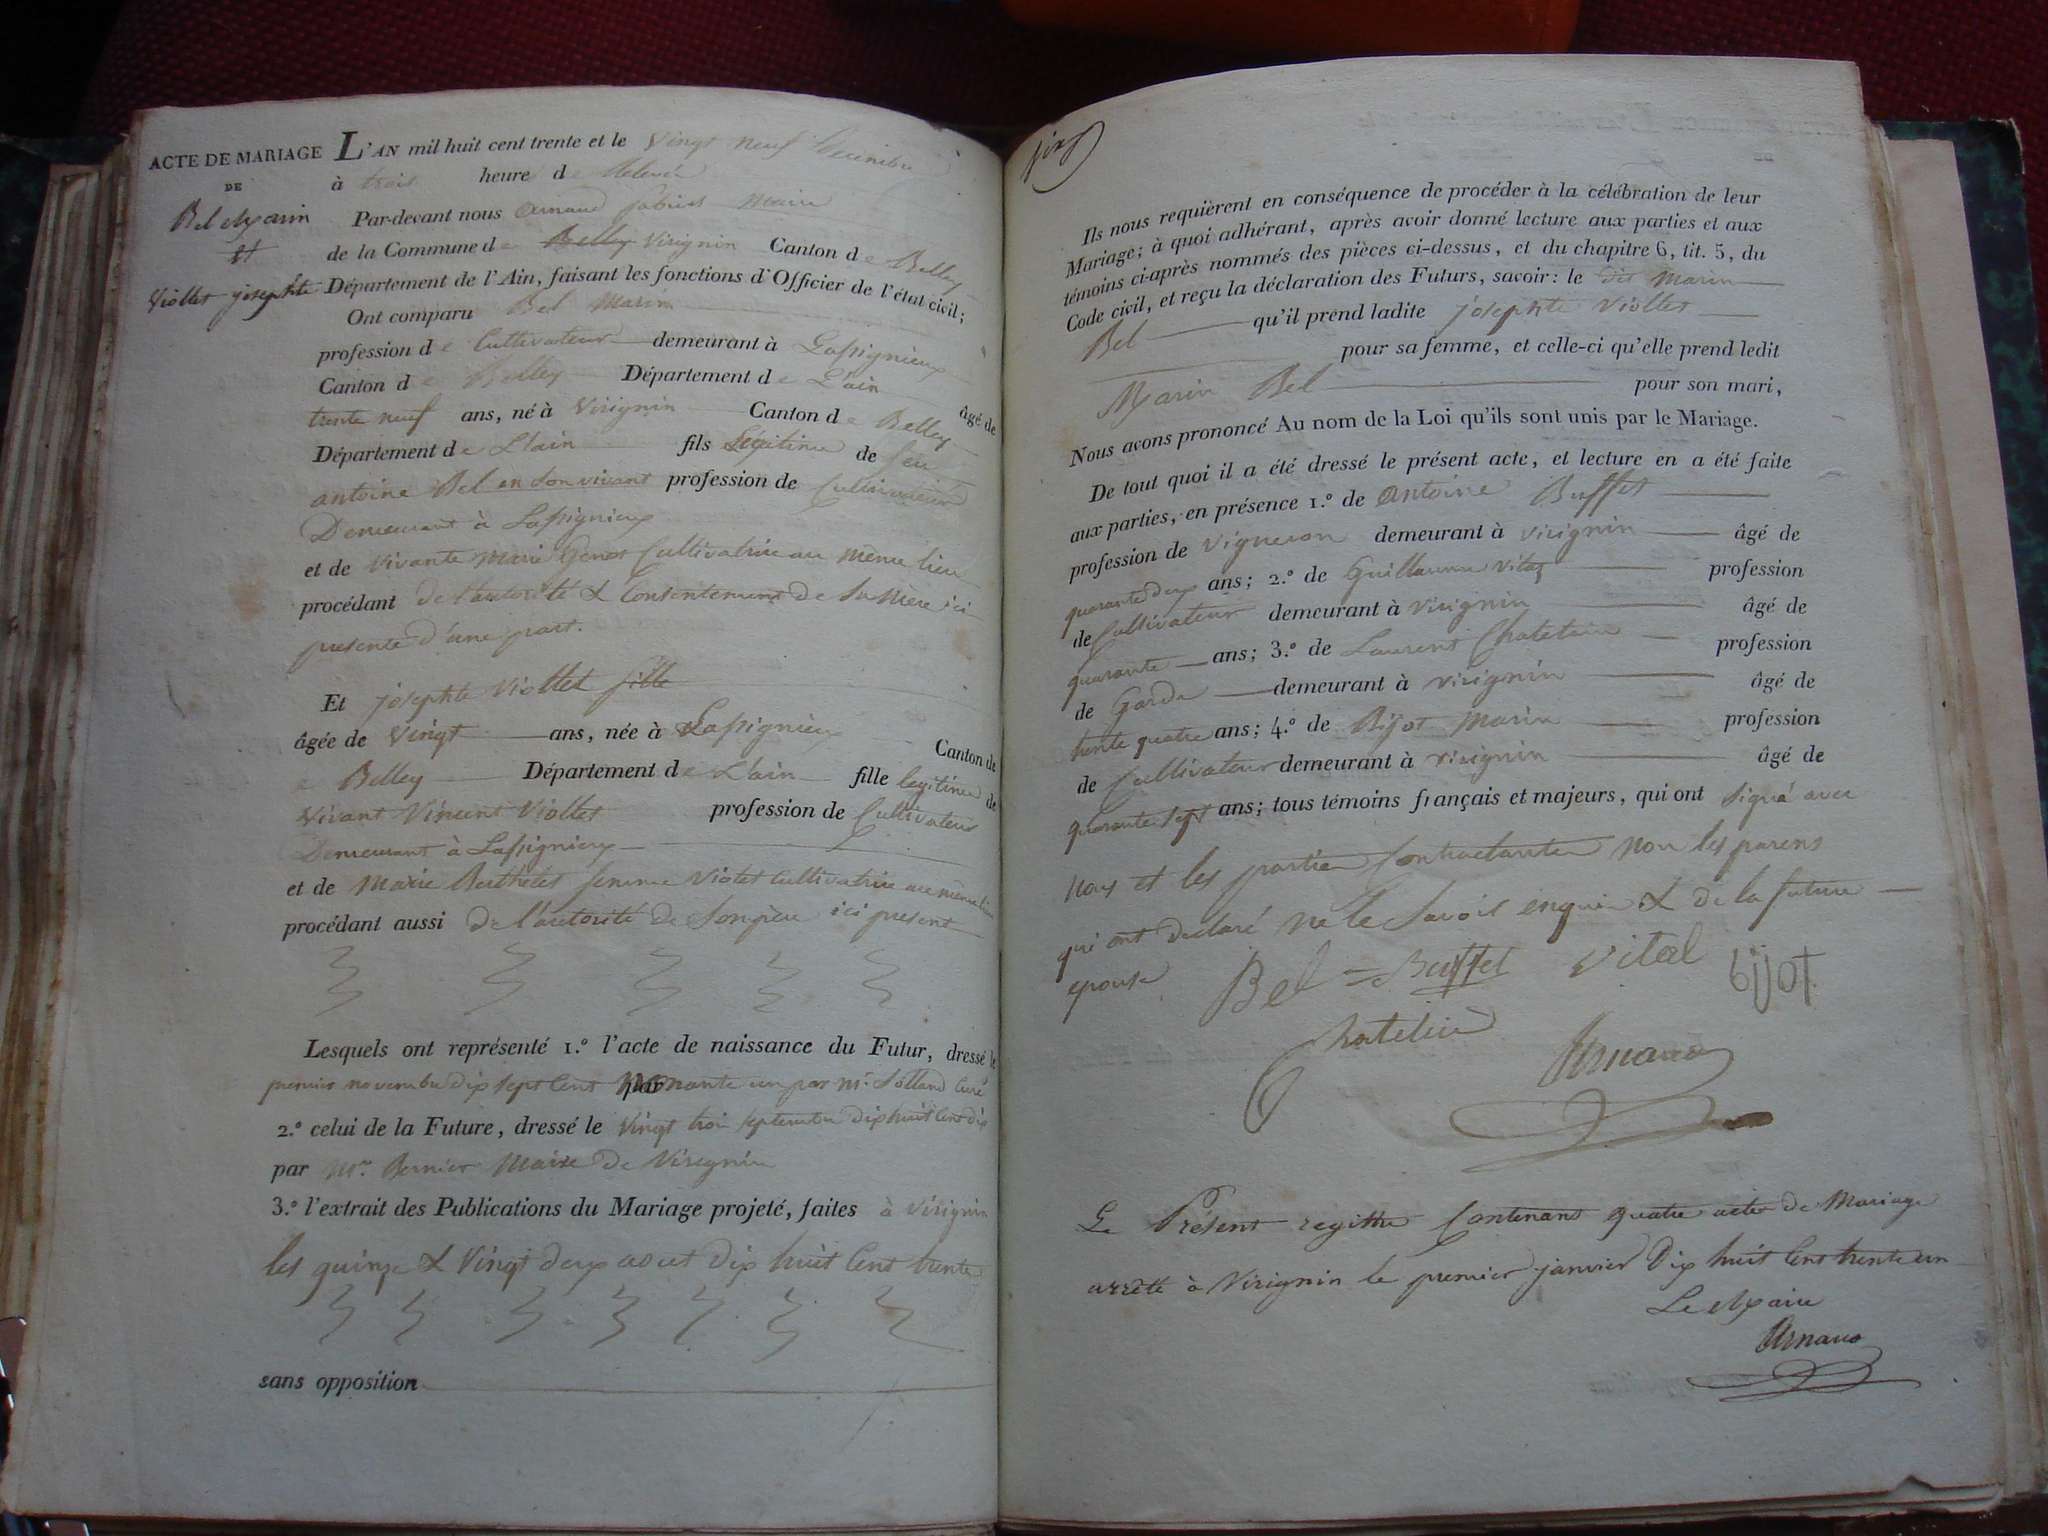 ACTE DE MARIAGE
DE
Bel Marin
et
Viollet josephte
L'AN mil huit cent trente et le Vingt neuf Decembre
à trois heure de Relevée
Par-devant nous Arnaud Maire
de la Commune de Belley Virignin Canton de Belley
Département de l'Ain, faisant les fonctions d'Officier de l'état civil;
Ont comparu Bel Marin
profession de Cultivateur demeurant à Lassignieux
Canton de Belley Département de L'ain âgé de
trente neuf ans, né à Virignin Canton de Belley
Département de L'ain fils Légitime de feu
antoine Bel en son vivant profession de Cultivateur
Demeurant à Lassignieux
et de vivante Marie Genot Cultivatrice au même lieu
procédant de l'autorité & Consentement de Sa Mère ici
presente d'une part.
Et josephte Viollet fille
âgée de Vingt ans, née à Lassignieux Canton de
e Belley Département de L'ain fille legitime de
Vivant Vincent Viollet profession de Cultivateur
Demeurant à Lassignieux
et de Marie Berthelet femme Violet Cultivatrice au même lieu
procédant aussi de l'autorité de Son père ici present
Lesquels ont représenté 1.º l'acte de naissance du Futur, dressé le
premier novembre dix sept Cent nonante un par Mr. Curé
2.º celui de la Future, dressé le Vingt trois septembre dix huit Cent dix
par Mr. Bernier Maire de Virignin
3.º l'extrait des Publications du Mariage projeté, faites à Virignin
les quinze & Vingt deux aout Dix huit Cent trente
sans opposition
Ils nous requièrent en conséquence de procéder à la célébration de leur
Mariage; à quoi adhérant, après avoir donné lecture aux parties et aux
témoins ci-après nommés des pièces ci-dessus, et du chapitre 6, tit. 5, du
Code civil, et reçu la déclaration des Futurs, savoir: le dit Marin
Bel qu'il prend ladite josephte Viollet
pour sa femme, et celle-ci qu'elle prend ledit
Marin Bel pour son mari,
Nous avons prononcé Au nom de la Loi qu'ils sont unis par le Mariage.
De tout quoi il a été dressé le présent acte, et lecture en a été faite
aux parties, en présence 1.º de Antoine Buffet
profession de Vigneron demeurant à Virignin âgé de
quarante deux ans; 2.º de Guillaume Vital profession
de Cultivateur demeurant à Virignin âgé de
quarante ans; 3.º de Laurent Chatelain profession
de Garde demeurant à Virignin âgé de
trente quatre ans; 4.º de Bijot Marin profession
de Cultivateur demeurant à Virignin âgé de
quarante sept ans; tous témoins français et majeurs, qui ont signé avec
Nous et les parties Contractantes non les parens
qui ont declaré ne le Savoir enquis & de la future
epouse Bel Buffet Vital bijot
Chatelain Arnaud
Le Présent registre Contenant quatre actes de Mariage
arrêté à Virignin le premier janvier Dix huit Cent trente un
Le Maire
Arnaud